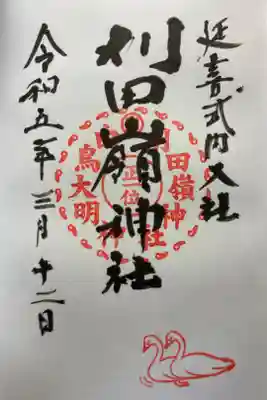 延喜式内大社
刈田嶺神社
令和五年三月十二日
田嶺神社
正一位
鳥大明神